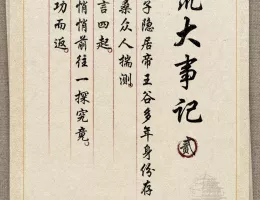 大事记
贰
子隐居帝王谷多年身份存
桑众人揣测。
言四起。
悄悄前往一探究竟。
功而返。